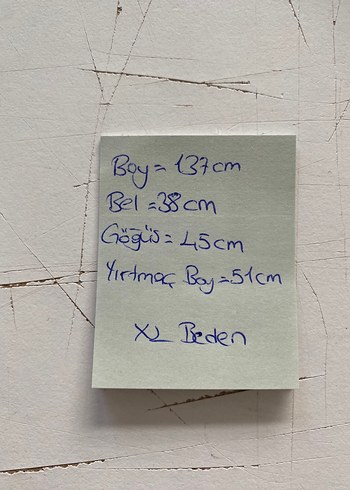 Boy = 137cm
Bel = 38cm
Göğüs = 45cm
Yırtmaç Boy = 51cm
XL Beden